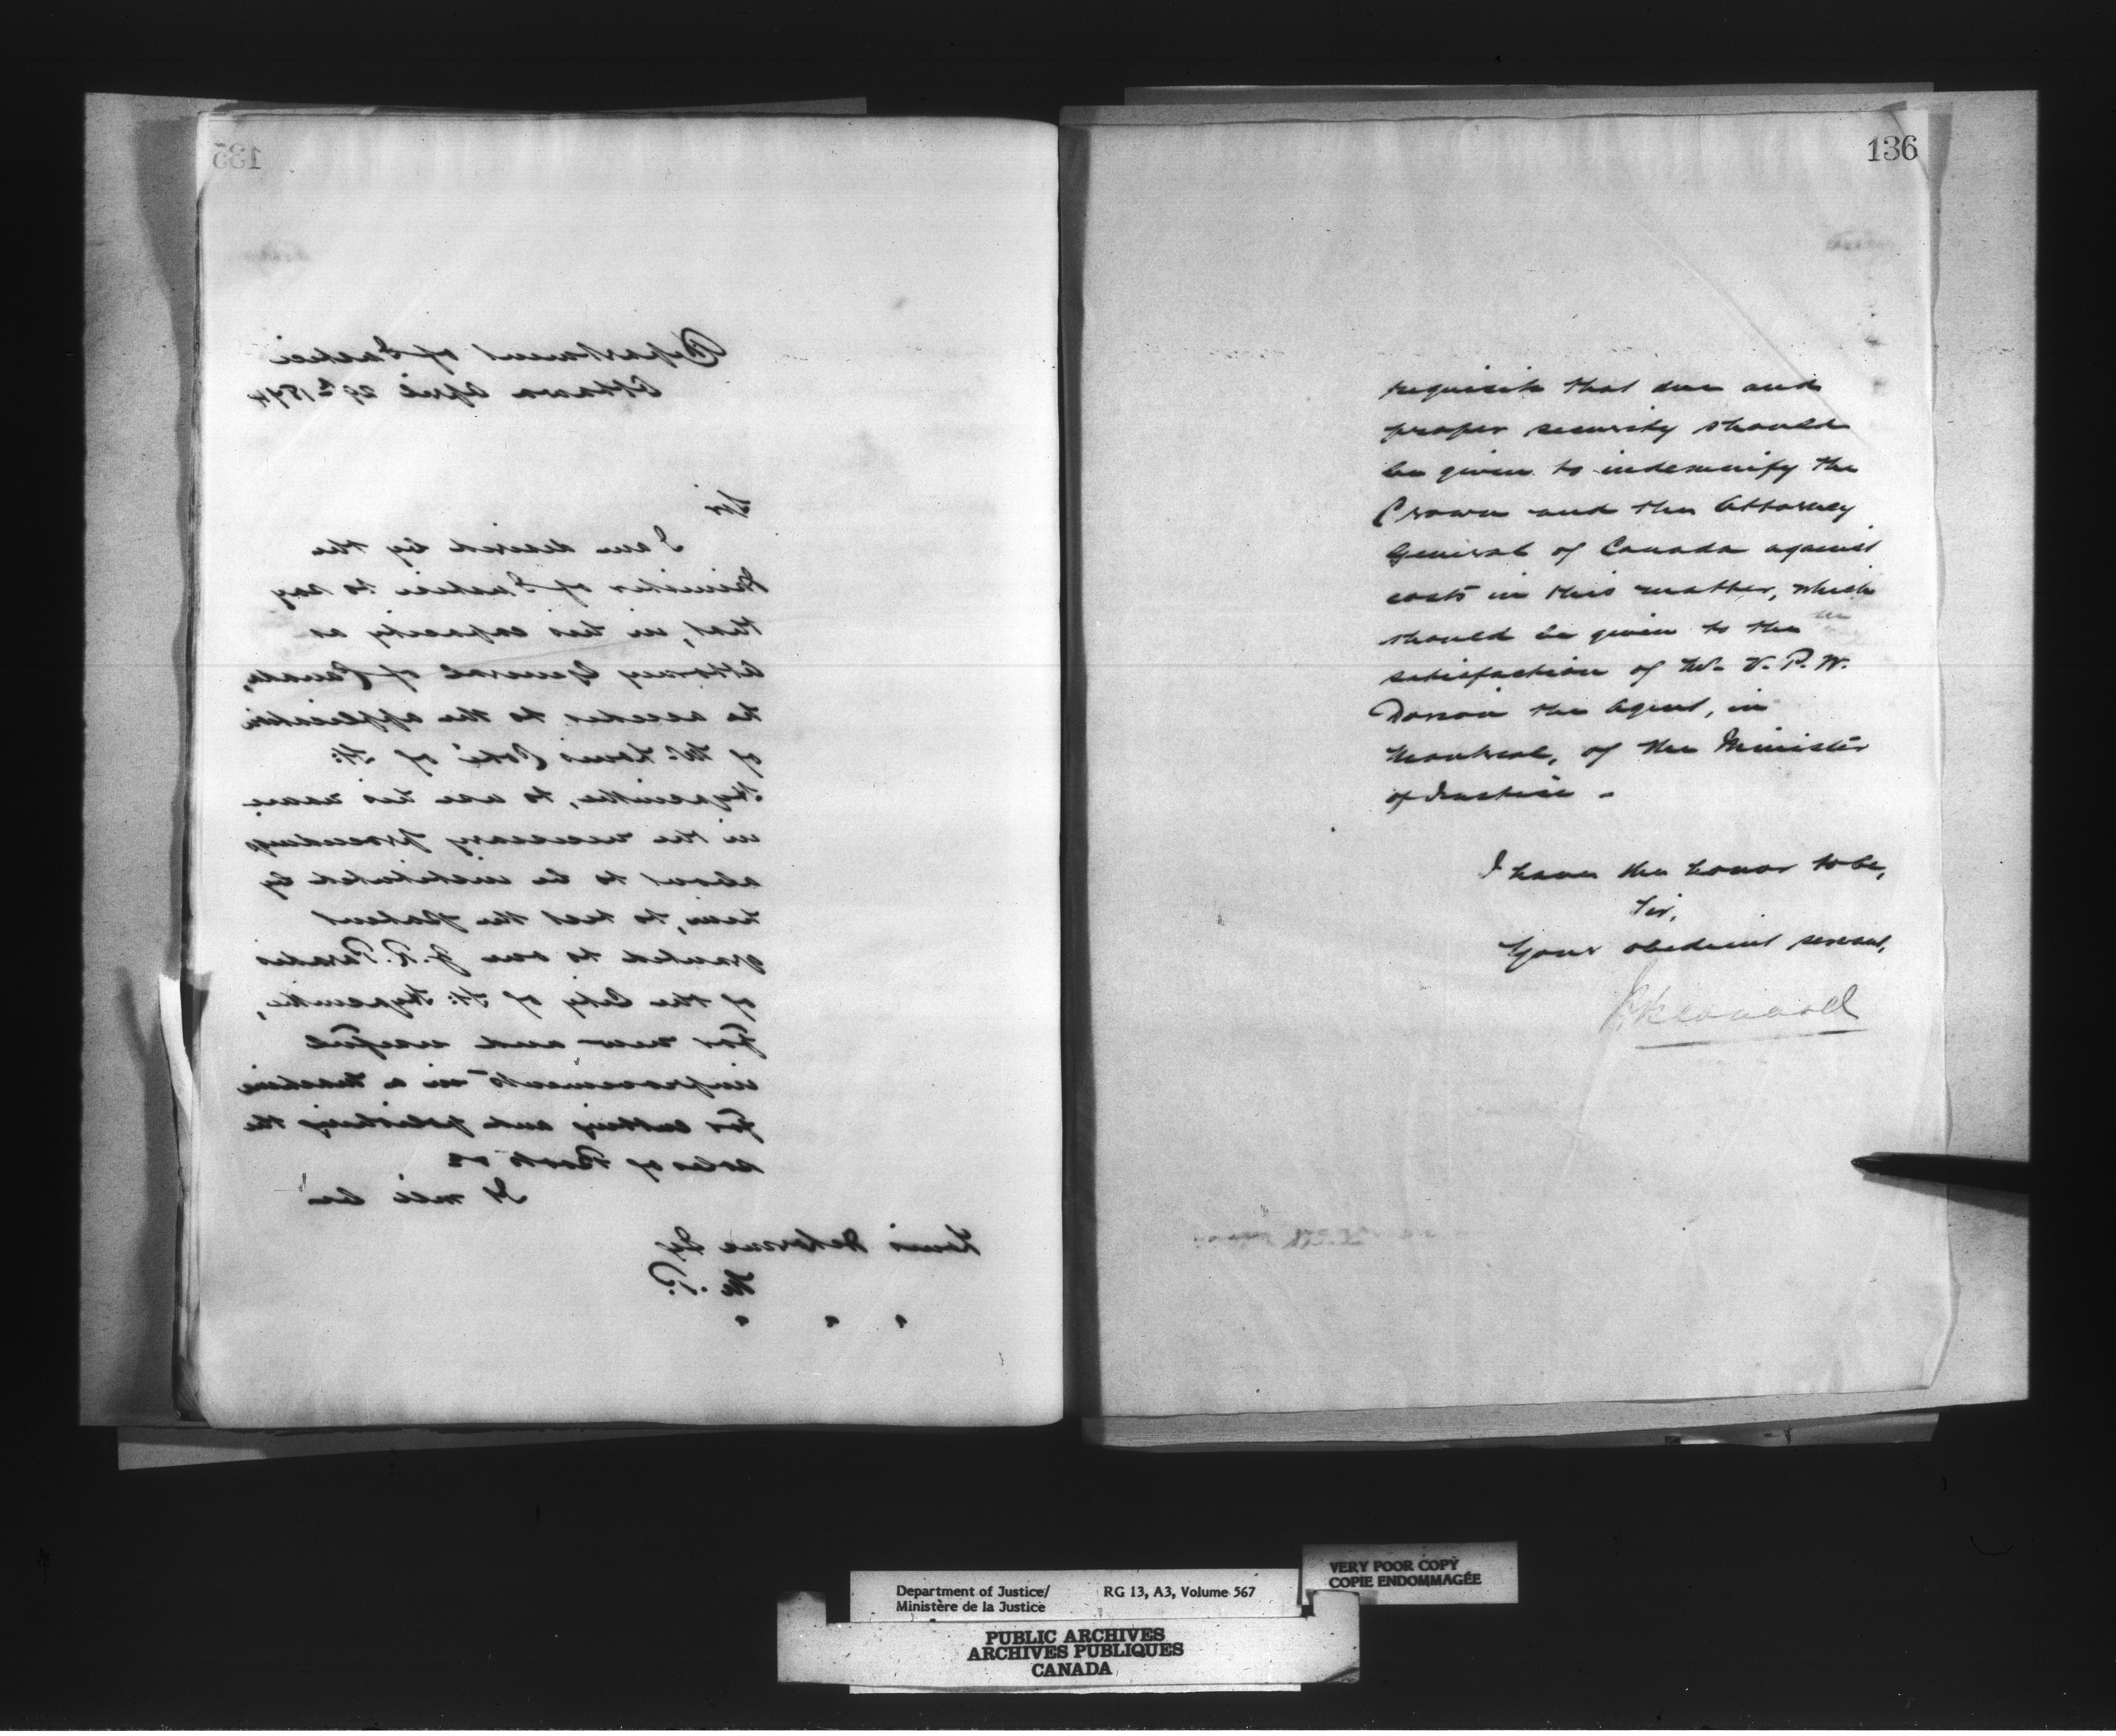 135
Department of Justice
Ottawa April 29th 1874
Sir
I am desired by the
Minister of Justice to say
that, in his capacity as
Attorney General of Canada,
he accedes to the application
of Mr. Louis Coté of St:
Hyacinthe, to use his name
in the necessary proceedings
about to be instituted by
him, to test the patent
granted to one J. R. Paradis
of the City of St: Hyacinthe,
for new and useful
improvements in a machine
for cutting and polishing the
soles of Boots &c
It will be
Louis Delorme Esq
M. P.
136
requisite that due and
proper security should
be given to indemnify the
Crown and the Attorney
General of Canada against
costs in this matter, which
should be given to the
satisfaction of Mr. V. P. W.
Dorion the Agent, in
Montreal, of the Minister
of Justice -
I have the honor to be,
Sir,
Your obedient servant,
Department of Justice/ RG 13, A3, Volume 567
Ministère de la Justice
VERY POOR COPY
COPIE ENDOMMAGÉE
PUBLIC ARCHIVES
ARCHIVES PUBLIQUES
CANADA